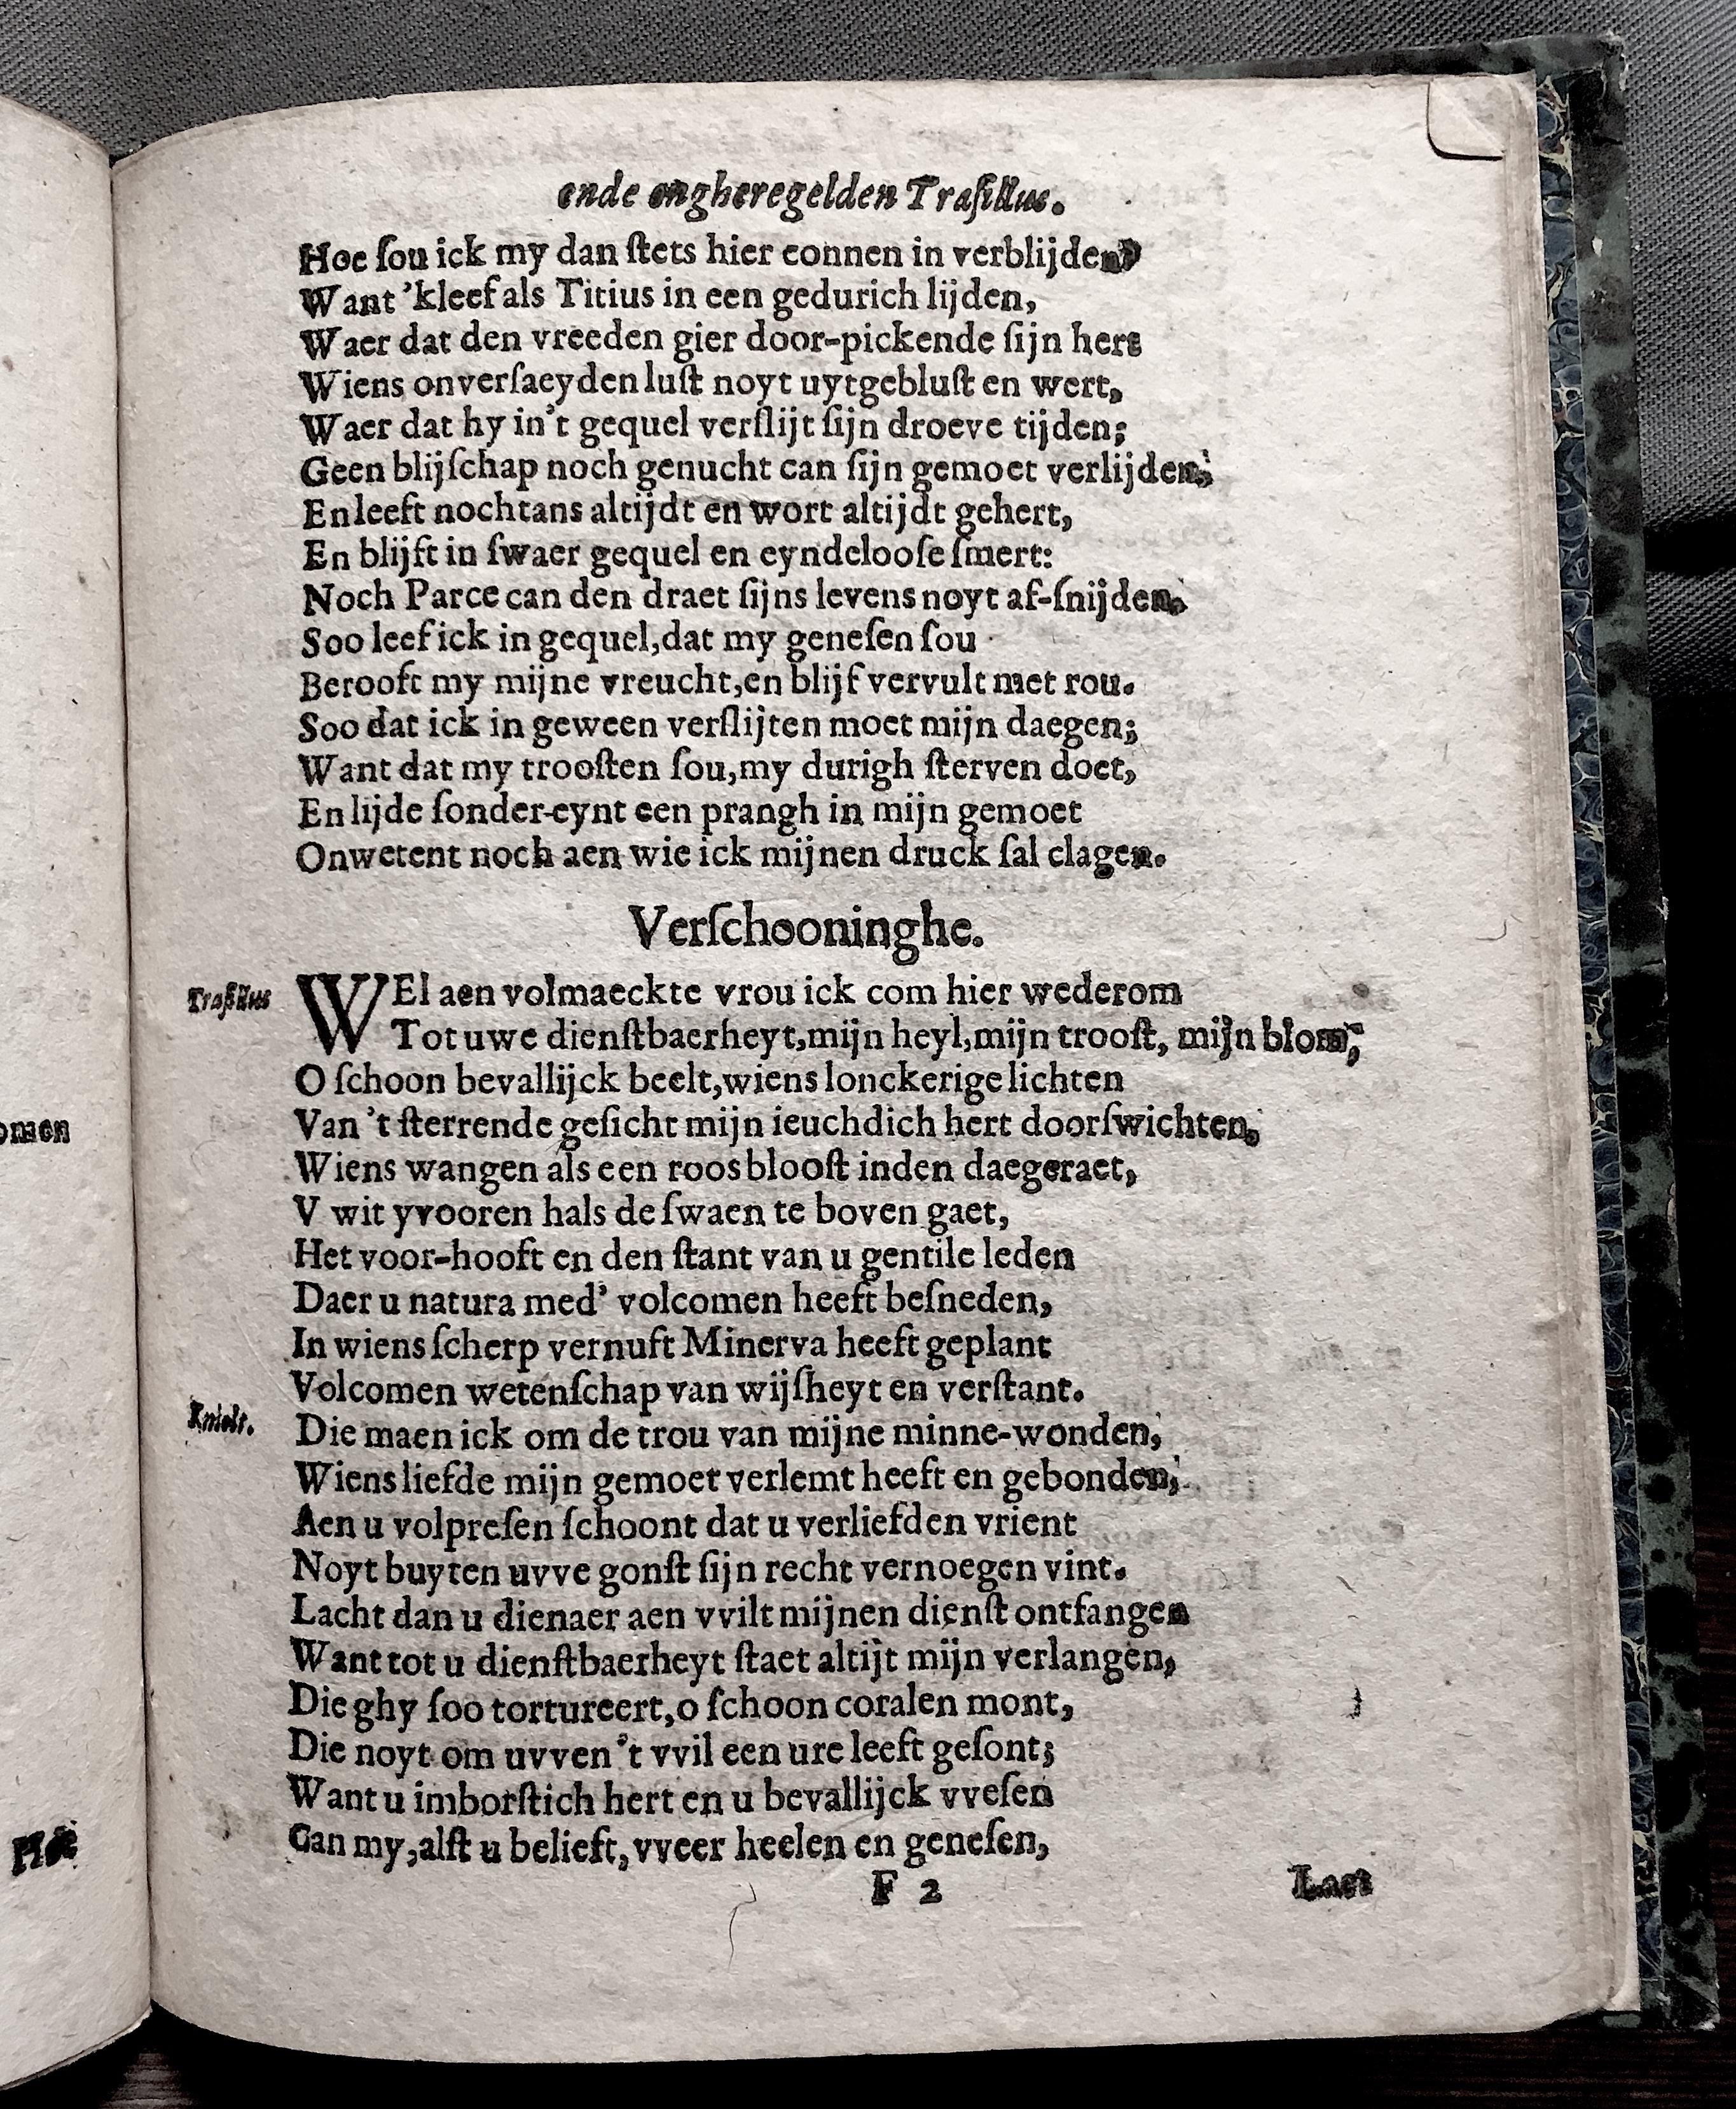 ende ongheregelden Traſillus.
Hoe ſou ick my dan ſtets hier connen in verblijden?
Want 'kleef als Titius in een gedurich lijden,
Waer dat den vreeden gier door-pickende ſijn hert
Wiens onverſaeyden luſt noyt uytgebluſt en wert,
Waer dat hy in't gequel verſlijt ſijn droeve tijden;
Geen blijſchap noch genucht can ſijn gemoet verlijden;
En leeft nochtans altijdt en wort altijdt gehert,
En blijft in ſwaer gequel en eyndelooſe ſmert:
Noch Parce can den draet ſijns levens noyt af-ſnijden.
Soo leef ick in gequel, dat my geneſen ſou
Berooft my mijne vreucht, en blijf vervult met rou.
Soo dat ick in geween verſlijten moet mijn daegen;
Want dat my trooſten ſou, my durigh ſterven doet,
En lijde ſonder-eynt een prangh in mijn gemoet
Onwetent noch aen wie ick mijnen druck ſal clagen.
Verſchooninghe.
Traſillus WEl aen volmaeckte vrou ick com hier wederom
Tot uwe dienſtbaerheyt, mijn heyl, mijn trooſt, mijn blom;
O ſchoon bevallijck beelt, wiens lonckerige lichten
Van 't ſterrende geſicht mijn ieuchdich hert doorſwichten,
Wiens wangen als een roos blooſt inden daegeraet,
V wit yvooren hals de ſwaen te boven gaet,
Het voor-hooft en den ſtant van u gentile leden
Daer u natura med' volcomen heeft beſneden,
In wiens ſcherp vernuft Minerva heeft geplant
Volcomen wetenſchap van wijſheyt en verſtant.
Knielt. Die maen ick om de trou van mijne minne-wonden,
Wiens liefde mijn gemoet verlemt heeft en gebonden;
Aen u volpreſen ſchoont dat u verliefden vrient
Noyt buyten uvve gonſt ſijn recht vernoegen vint.
Lacht dan u dienaer aen vvilt mijnen dienſt ontfangen
Want tot u dienſtbaerheyt ſtaet altijt mijn verlangen,
Die ghy ſoo tortureert, o ſchoon coralen mont,
Die noyt om uvven 't vvil een ure leeft geſont;
Want u imborſtich hert en u bevallijck vveſen
Can my, alſt u belieft, vveer heelen en geneſen,
F 2 Laet
omen
Hoe